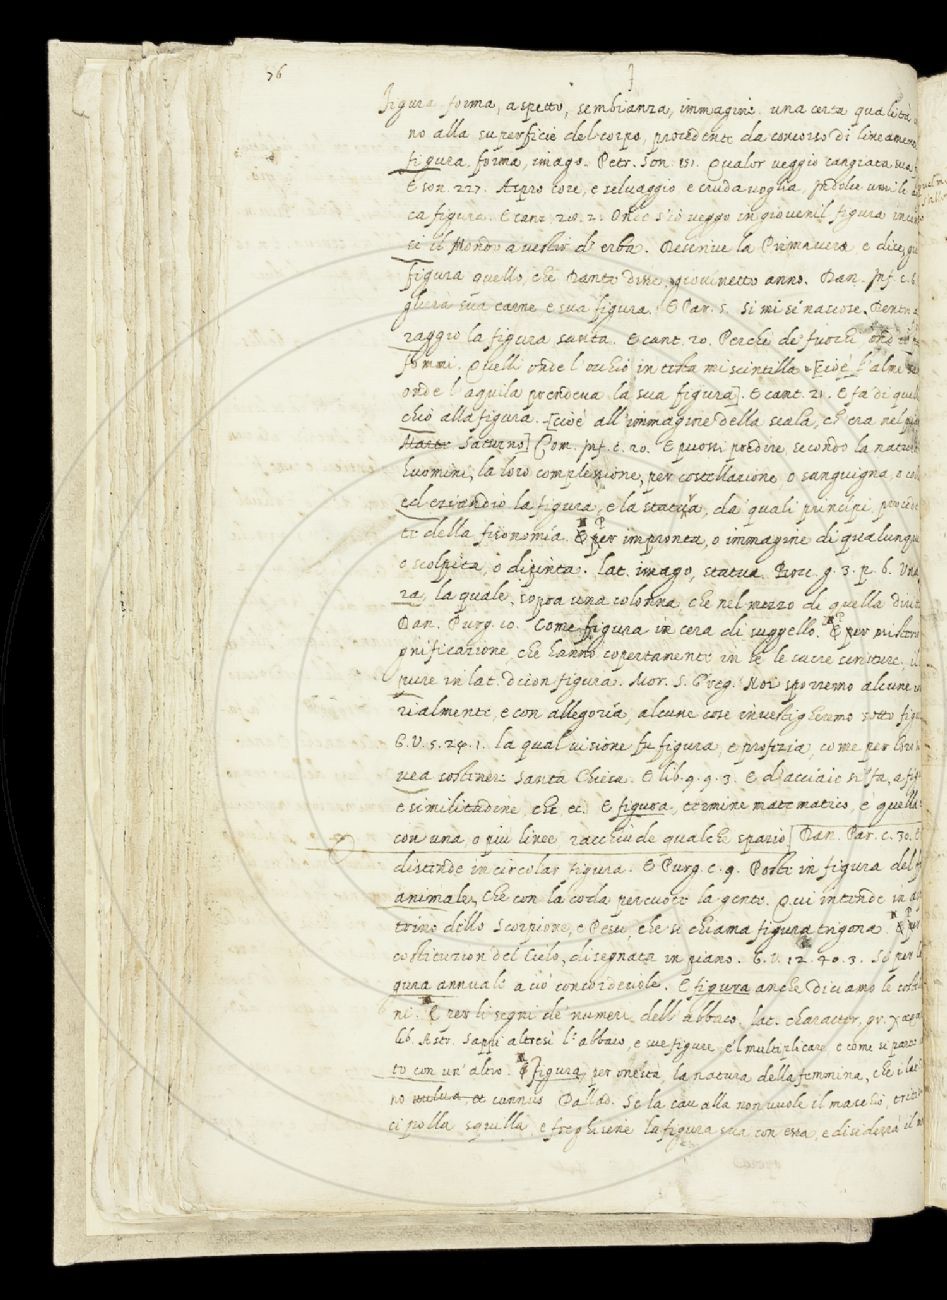 56
F
figura. forma, aspetto, sembianza, immagine. una certa qualità
no alla superficie del corpo, procedente da concorso di lineamen
figura, forma, imago. Petr. Son. 151. Qualor veggio cangiata sua
E son. 227. Aspro core, e selvaggio e cruda voglia, In dolce umile
ca figura. E canz. 20. 2. Onde s'io veggo in giovenil figura inc
si il Mondo a vestir d'erba. Descrive la Primavera e dice
figura quello, che Dante disse, giovinetto anno. Dan. Inf. c.
glierà sua carne e sua figura. E Par. 5. Sì mi si nascose, Dentr
raggio la figura santa. E cant. 20. Perchè de' fuochi ond'io
fommi, Quelli onde l'occhio in testa mi scintilla [cioè l'alme
onde l'aquila prendeva la sua figura]. E cant. 21. E fa di quel
chio alla figura. [cioè all'immagine della scala, ch'era nel
Marte Saturno] Com. Inf. c. 20. E puossi predire secondo la natur
huomini, la loro complessione, per costellazione o sanguigna, o co
ed eziandio la figura, e la statura, da quali principi proced
ti della fisonomía. E per impronta, o immagine di qualunque
o scolpita, o dipinta. lat. imago, statua. Bocc. g. 3. p. 6. Una
ra, la quale, sopra una colonna, che nel mezzo di quella diri
Dan. Purg. 10. Come figura in cera si suggella. E per mister
gnificazione, che hanno copertamente in se le sacre scritture, i
pure in lat. dicon figura. Mor. S. Greg. Noi sporremo alcune
rialmente, e con allegoría, alcune cose investigheremo sotto figu
G. V. 5. 24. 1. la qual visione fu figura, e profezia, come per
vea sostener Santa Chiesa. E lib. 9. 9. 3. E d'acciaio si fa, a fi
e similitudine, che ec. E figura, termine matematico, è quella
con una o più linee racchiude qualche spazio [Dan. Par. c. 30. E
distende in circolar figura. E Purg. c. 9. Poste in figura del
animale, Che con la coda percuote la gente. Qui intende in
trino dello Scorpione, e Pesci, che si chiama figura trigona. E per
costituzion del Cielo, disegnata in piano. G. V. 12. 40. 3. Si per
gura annuale a ciò concordevole. E figura anche diciamo le cost
ni. E per li segni de' numeri dell'abbaco. lat. character, gr.
lib. Astr. Sappi altresì l'abbaco, e sue figure, e'l multiplicare e come si
to con un'altro. E figura, per onestà, la natura della femmina, che i lat
no vulva, et cunnus Pallad. Se la cavalla non vuole il maschio,
ci polla squilla e freghisene la figura sua con essa, e disidererà il